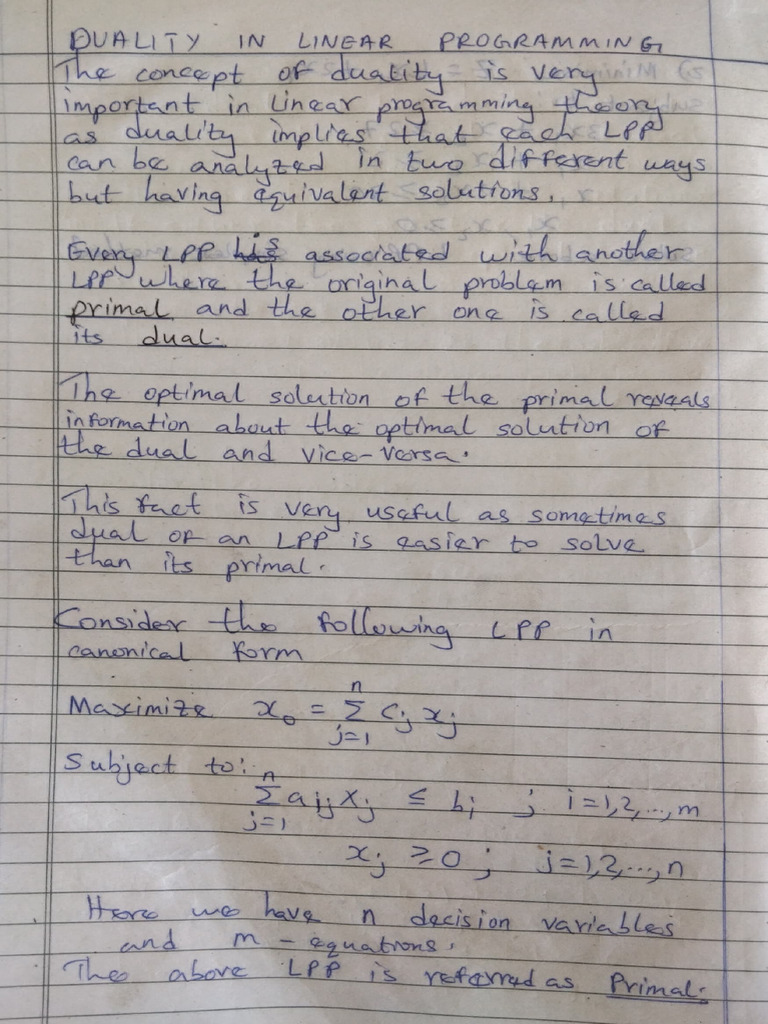 DUALITY IN LINEAR PROGRAMMING
The concept of duality is very
important in linear programming theory
as duality implies that each LPP
can be analyzed in two different ways
but having equivalent solutions.
Every LPP is associated with another
LPP where the original problem is called
primal and the other one is called
its dual.
The optimal solution of the primal reveals
information about the optimal solution of
the dual and vice-versa.
This fact is very useful as sometimes
dual of an LPP is easier to solve
than its primal.
Consider the following LPP in
canonical form
Maximize x₀ = Σⁿⱼ₌₁ cⱼ xⱼ
Subject to:
Σⁿⱼ₌₁ aᵢⱼ xⱼ ≤ bᵢ ; i=1,2,...,m
xⱼ ≥ 0 ; j=1,2,...,n
Here we have n decision variables
and m - equations.
The above LPP is referred as Primal.